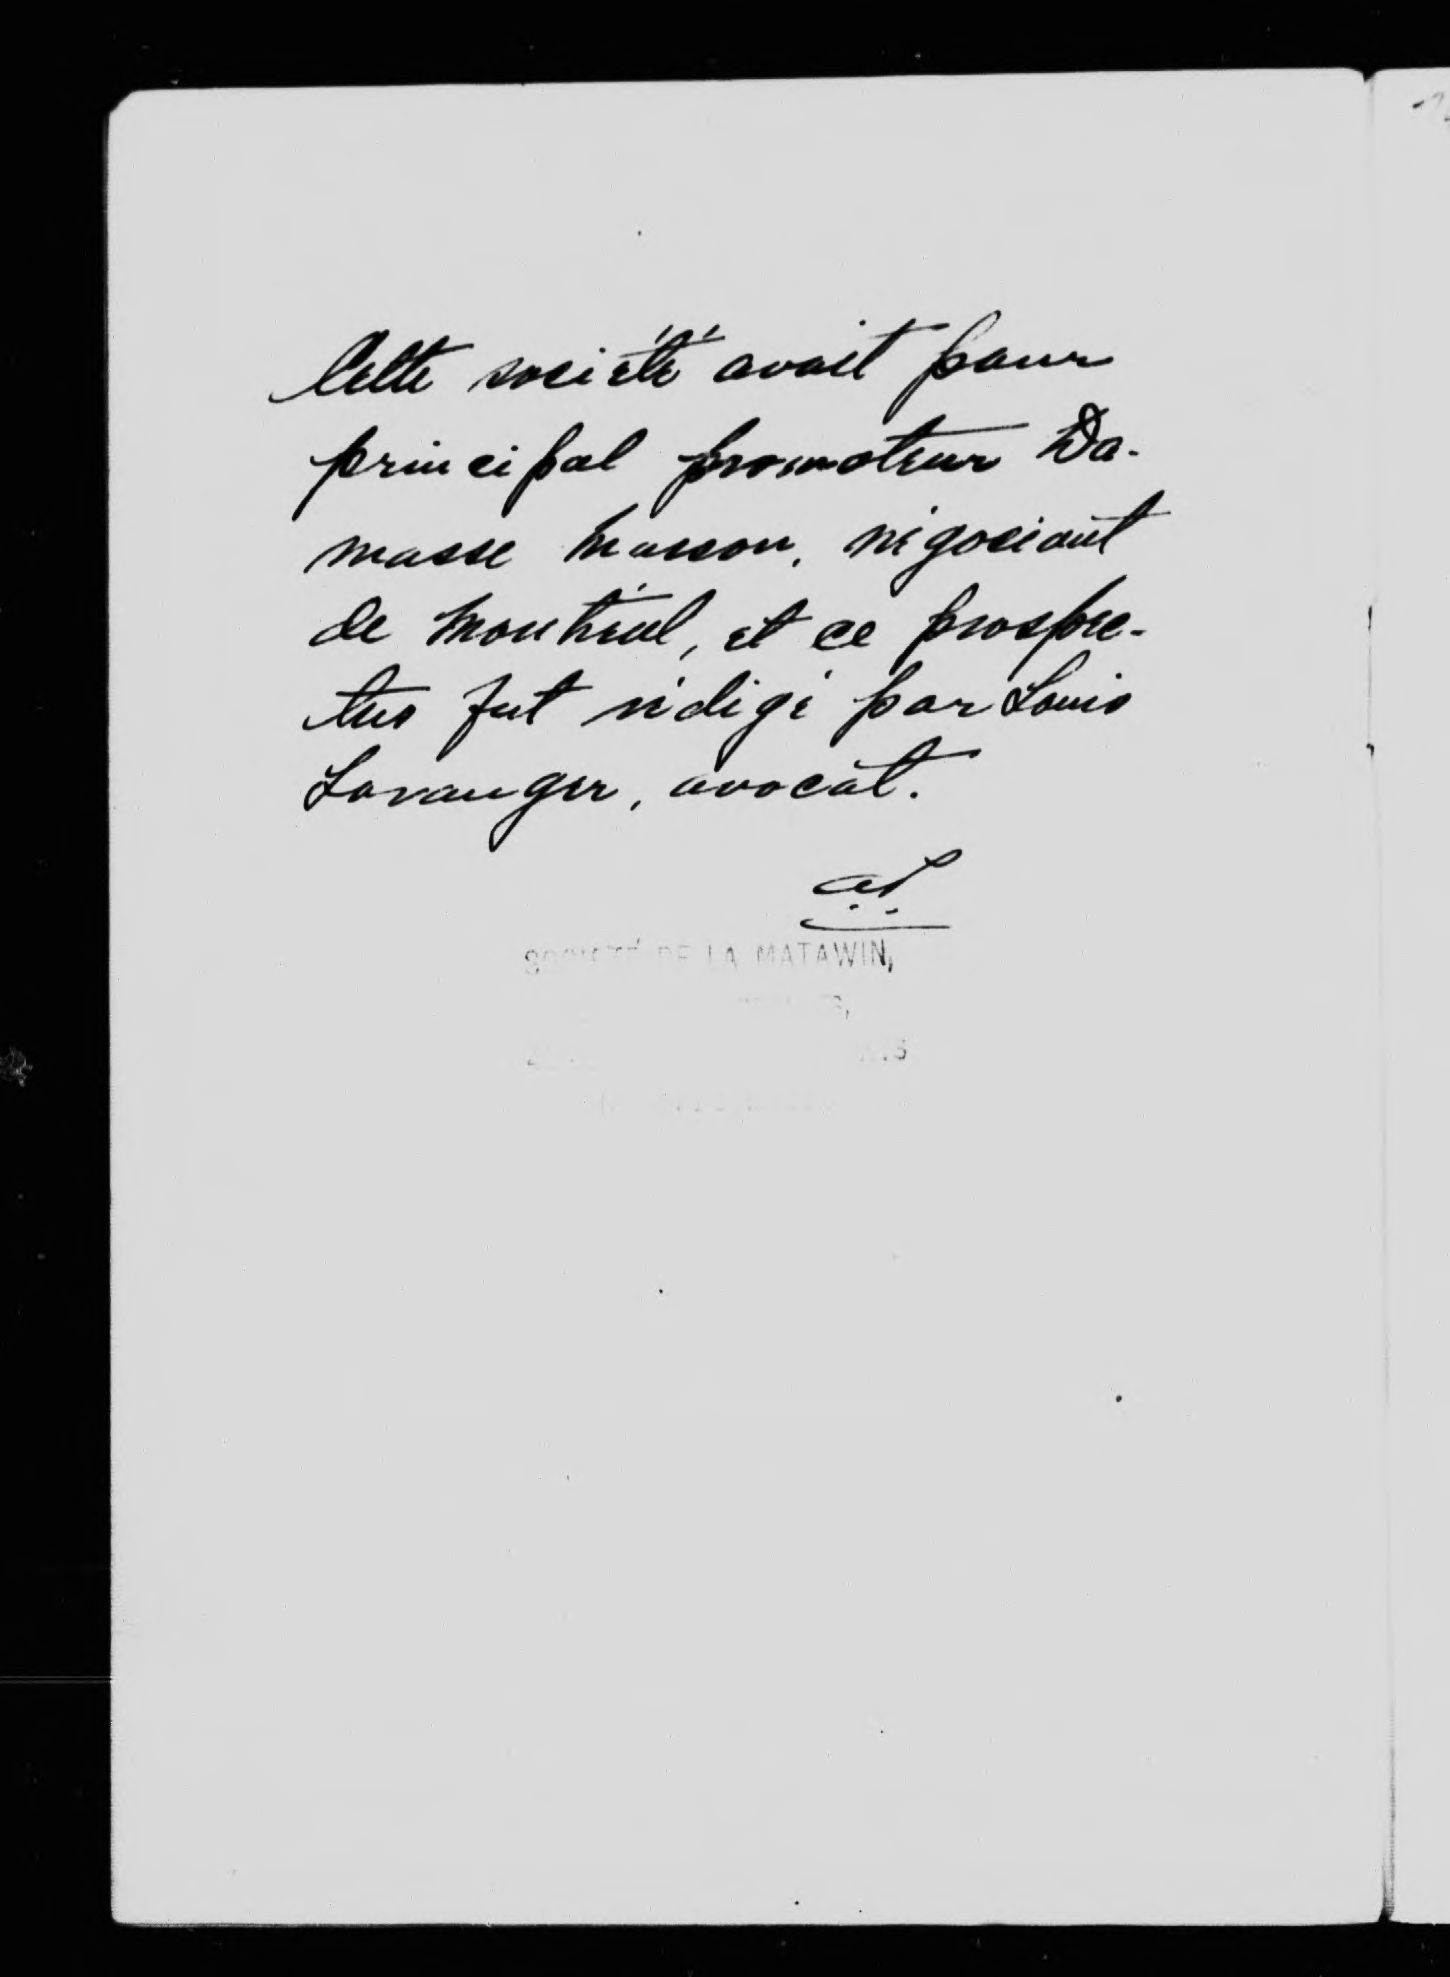 Cette société avait pour
principal promoteur Da-
masse Masson, négociant
de Montréal, et ce prospec-
tus fut rédigé par Louis
Loranger, avocat.
SOCIÉTÉ DE LA MATAWIN,